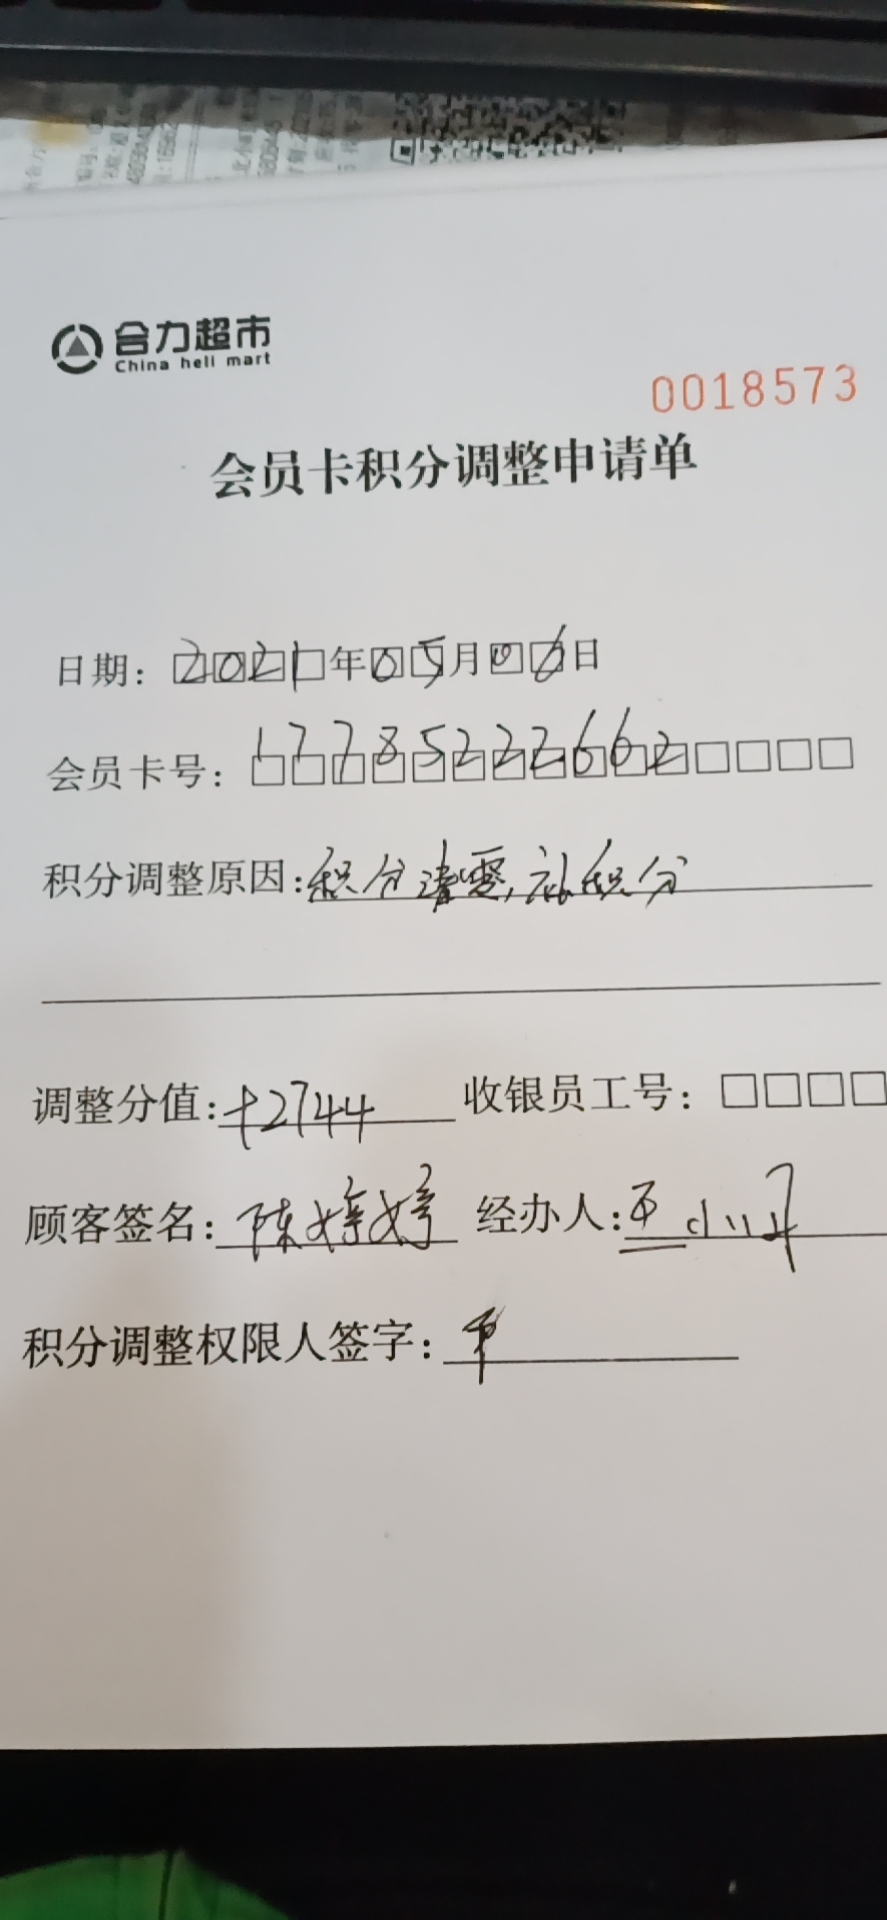 合力超市
China heli mart
0018573
会员卡积分调整申请单
日期：2021年05月06日
会员卡号：17785222662
积分调整原因：积分清零，补积分
调整分值：+2744 收银员工号：
顾客签名：陈婷婷 经办人：
积分调整权限人签字：